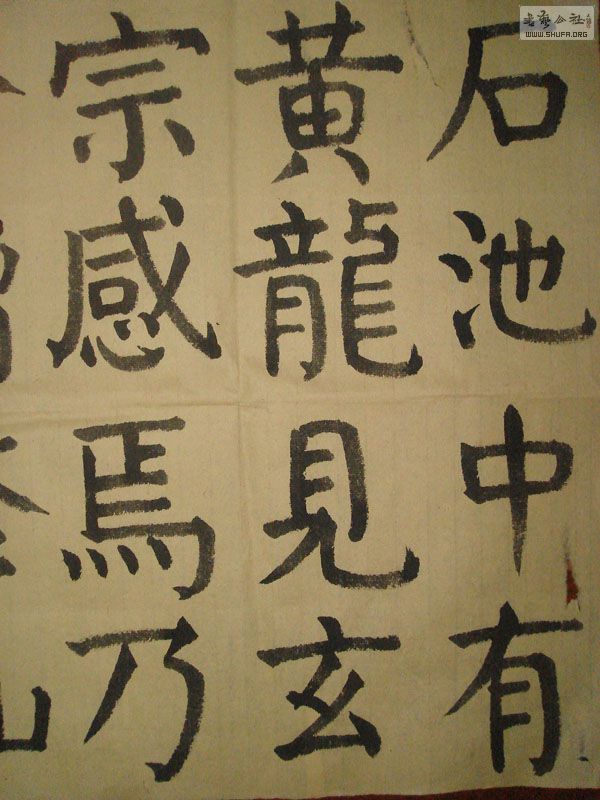 石池中有
黄龍見玄
宗感焉乃
WWW.SHUFA.ORG